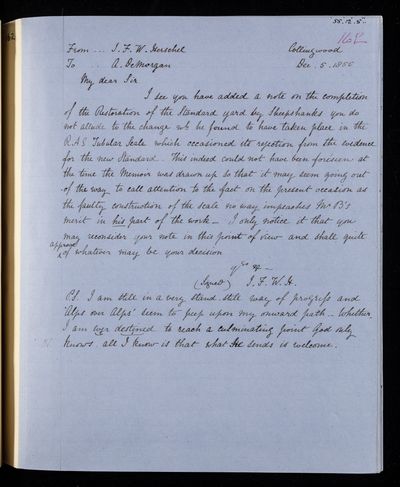 55.12.5.
From ... J. F. W. Herschel Collingwood
To ... A. DeMorgan Dec. 5. 1855
My dear Sir
I see you have added a note on the completion
of the Restoration of the Standard yard by Sheepshanks you do
not allude to the change wh he found to have taken place in the
R.A.S Tubular Scale which occasioned its rejection from the evidence
for the new Standard. This indeed could not have been foreseen at
the time the Memoir was drawn up so that it may seem going out
of the way to call attention to the fact on the present occasion as
the faulty construction of the scale no way impeaches Mr B's
merit in his part of the work — I only notice it that you
may reconsider your note in this point of view and shall quite
approve
of whatever may be your decision
yrs &c —
(Signed) J. F. W. H.
P.S. I am still in a very stand still way of progress and
'Alps over Alps' seem to peep upon my onward path — Whether
I am ever destined to reach a culminating point God only
knows all I know is that what He sends is welcome.